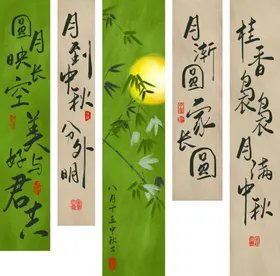 桂香袅袅月满中秋
月渐圓家圓
八月十五中秋
月到中秋
分外明
月长
圓映空
美与
好君共